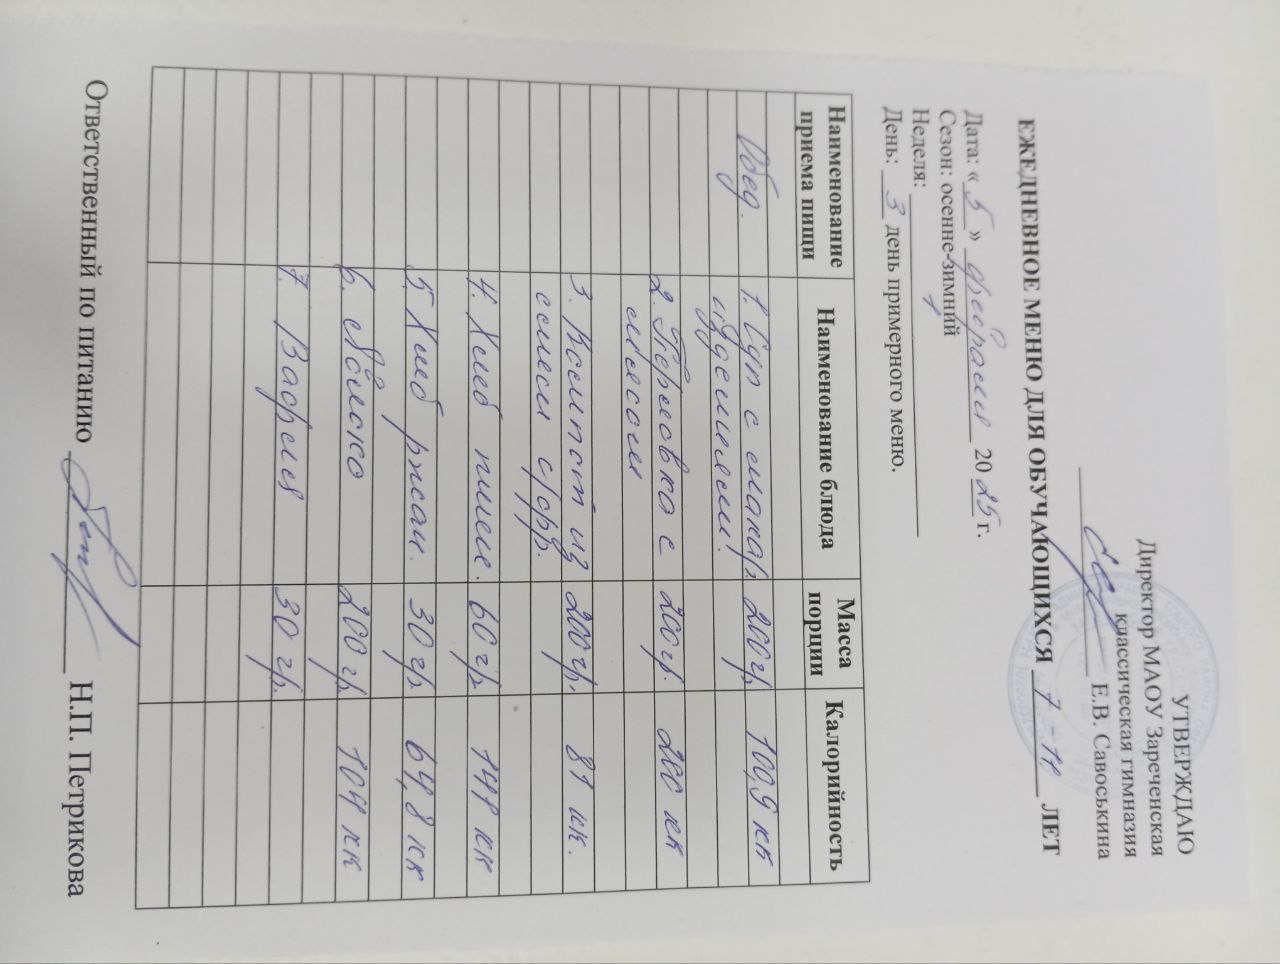 УТВЕРЖДАЮ
Директор МАОУ Зареченская
классическая гимназия
Е.В. Савоськина
ЕЖЕДНЕВНОЕ МЕНЮ ДЛЯ ОБУЧАЮЩИХСЯ 7-11 ЛЕТ
Дата: «5» февраля 2025 г.
Сезон: осенне-зимний
Неделя:
День: 3 день примерного меню.
Наименование приема пищи Наименование блюда Масса порции Калорийность
Обед. 1. Суп с макар. 200гр 100,9 кк
изделиями.
2. Перловка с 200гр. 200 кк
мясом
3. Компот из 200гр. 81 кк.
смеси с/фр.
4. Хлеб пшен. 60гр 144 кк
5. Хлеб ржан. 30гр 64,8 кк
6. Яблоко 200гр 104 кк
7. Вафля 30гр.
Ответственный по питанию Н.П. Петрикова